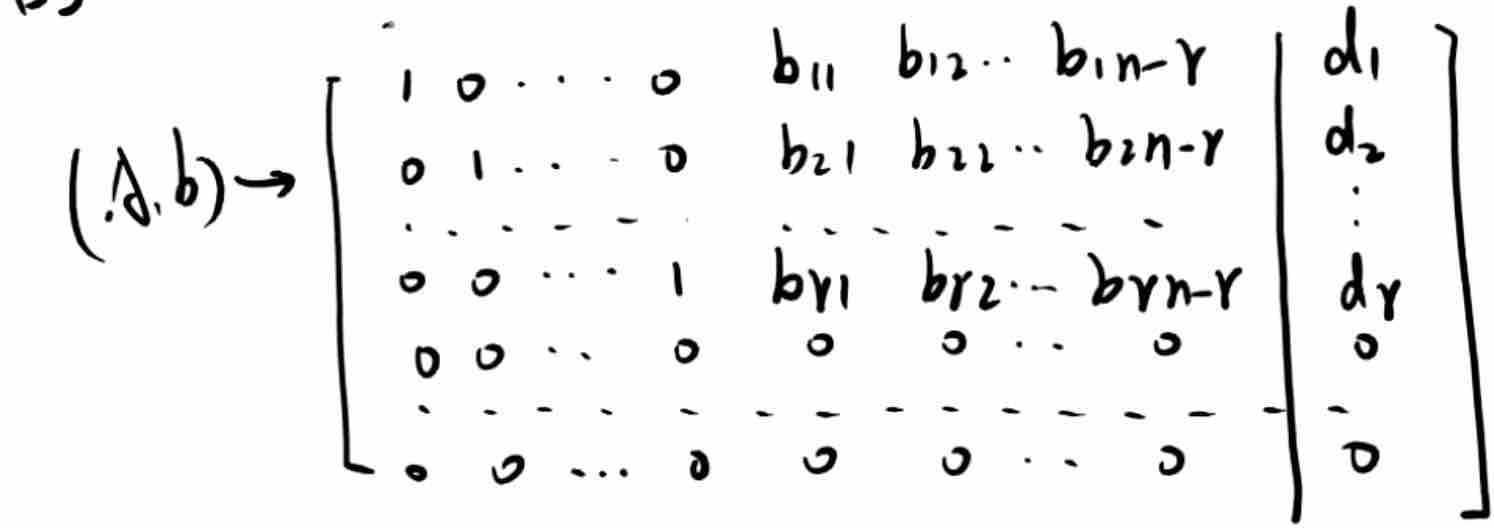 1 0 · · · 0 b11 b12 ·· b1n-r d1
0 1 · · · 0 b21 b22 ·· b2n-r d2
(A, b) → · · · · · · · · · · · · ⋮
0 0 ··· 1 br1 br2 ··· brn-r dr
0 0 ·· ·· 0 0 0 · ·· 0 0
· · · · · · · · · · · · · · · ·
0 0 ··· 0 0 0 · ·· 0 0